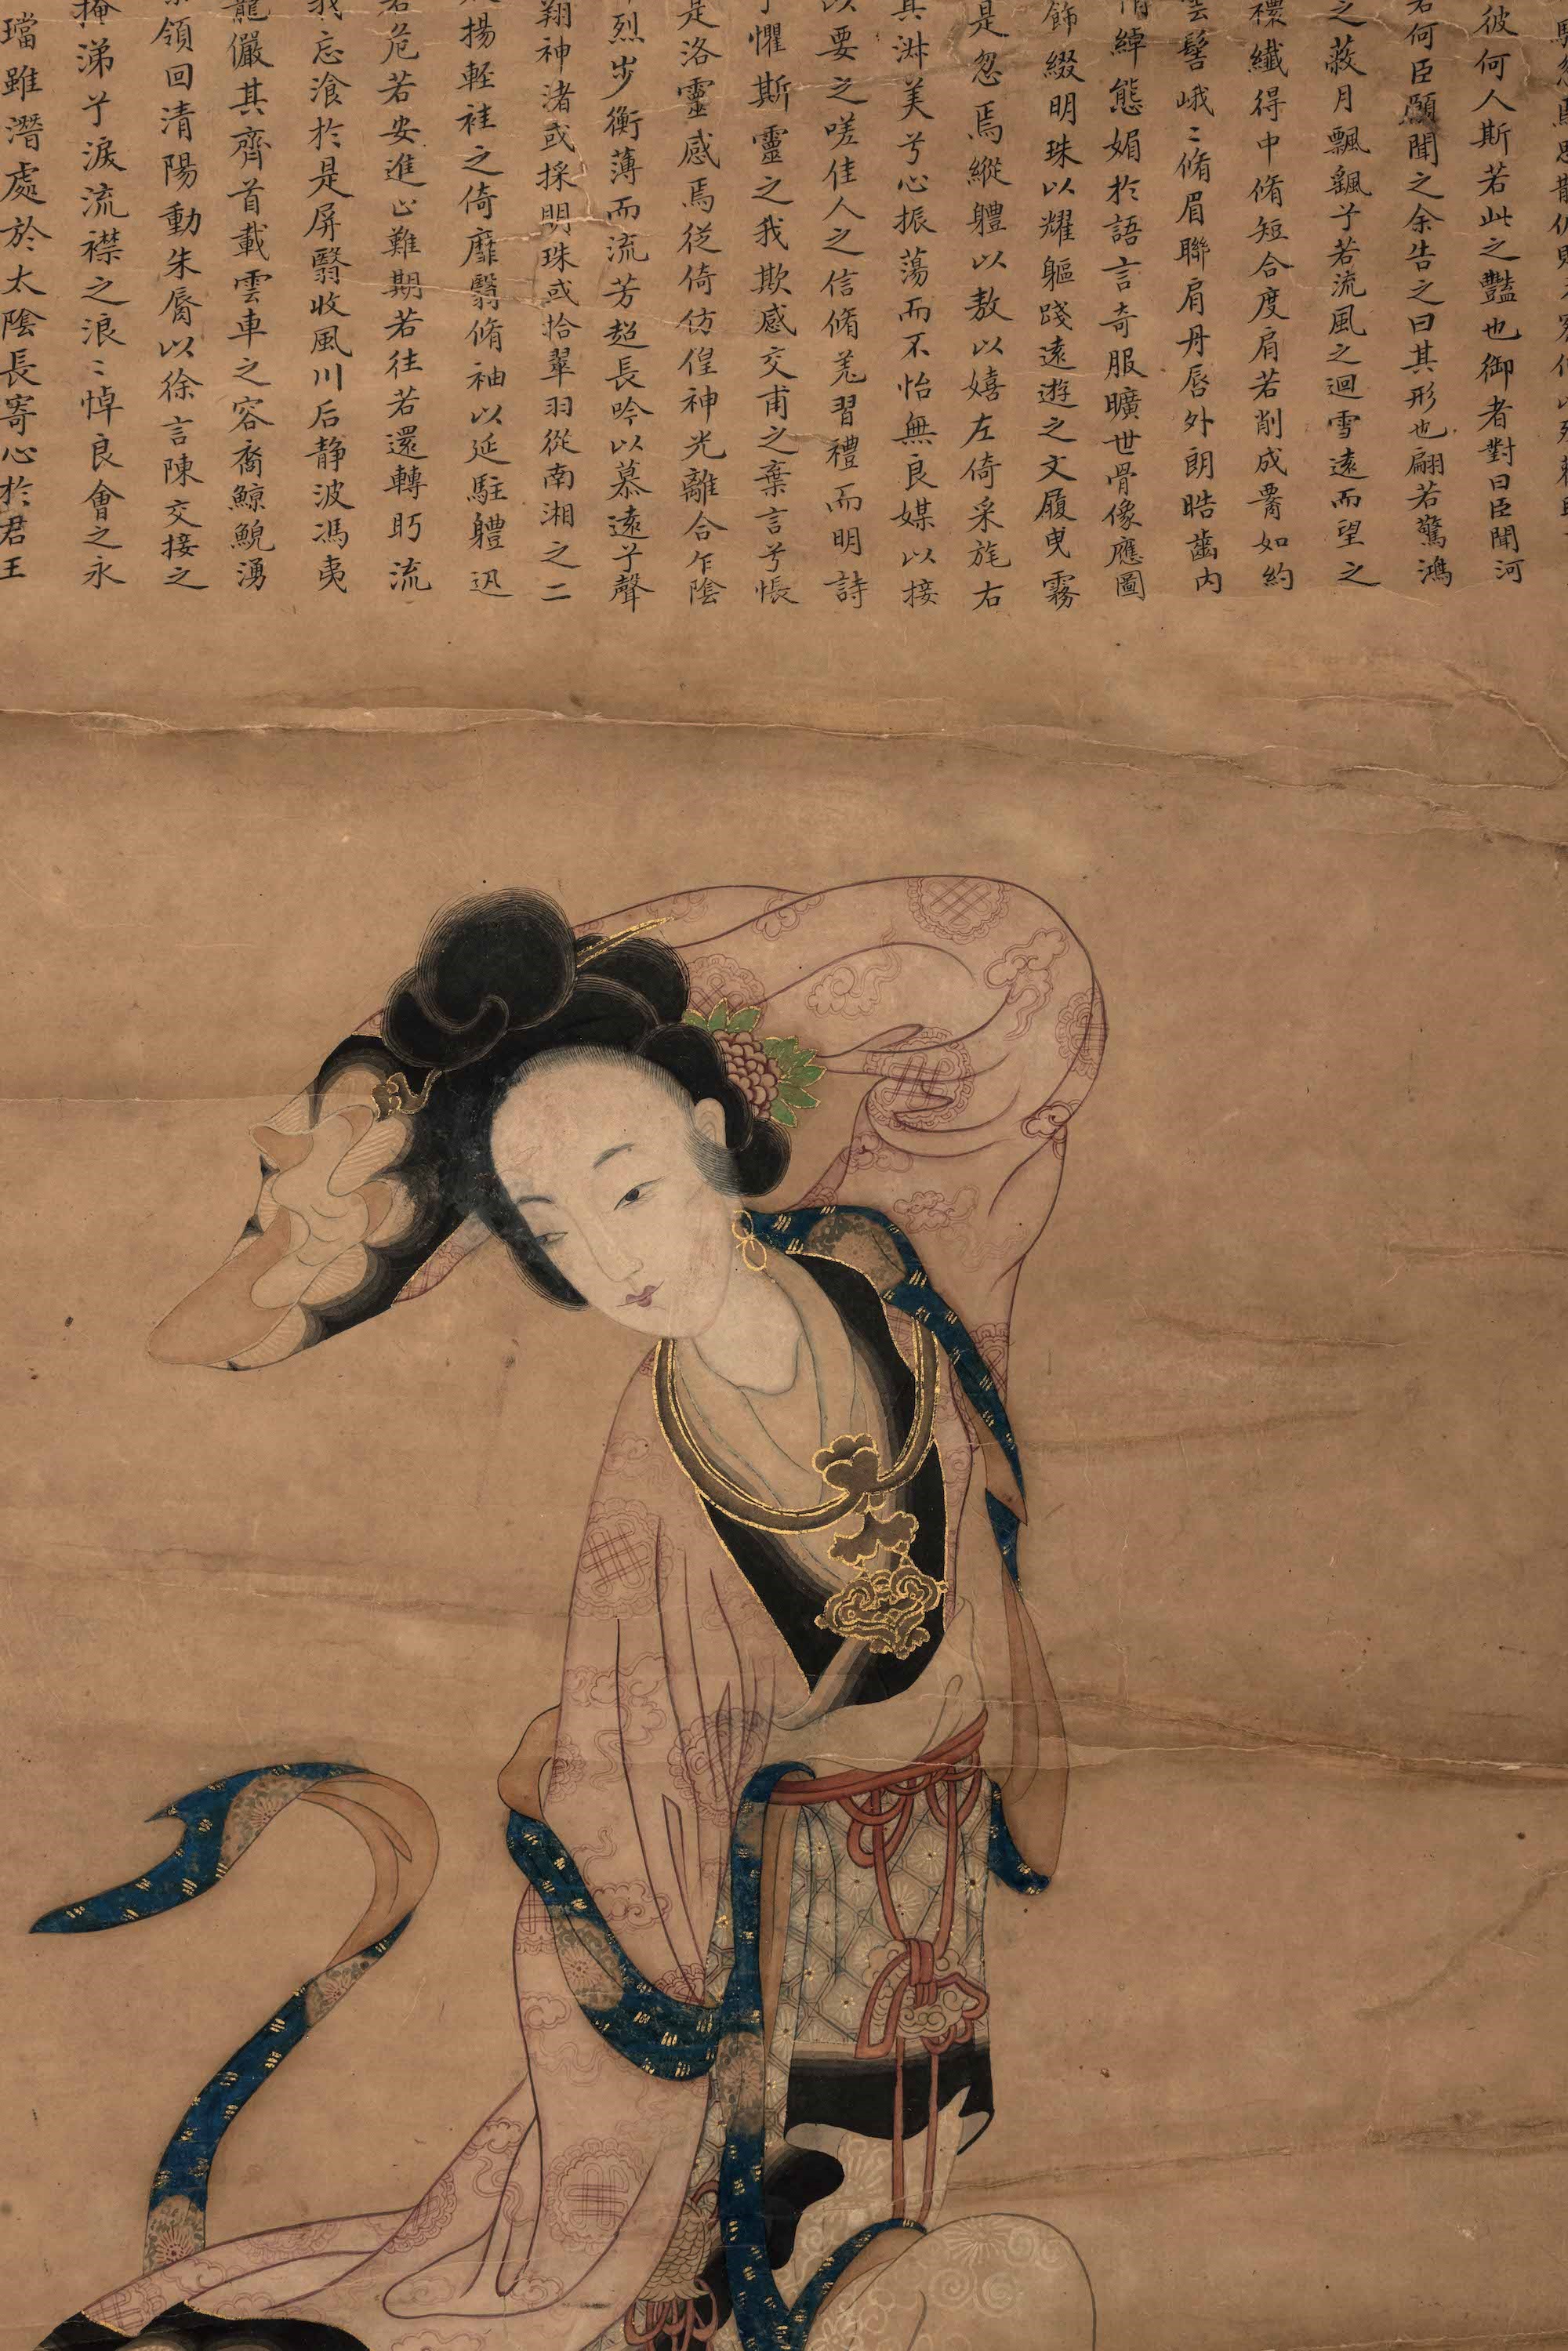 彼何人斯若此之豔也御者對曰臣聞河
若何臣願聞之余告之曰其形也翩若驚鴻
之蔽月飄颻兮若流風之迴雪遠而望之
襛纖得中脩短合度肩若削成署如約
雲髻峨〻脩眉聯肩丹唇外朗皓齒内
情綽態媚於語言奇服曠世骨像應圖
飾綴明珠以耀軀踐遠遊之文履曳霧
是忽焉縱軆以敖以嬉左倚采旄右
其淋美兮心振蕩而不怡無良媒以接
以要之嗟佳人之信脩羌習禮而明詩
懼斯靈之我欺感交甫之棄言兮悵
是洛靈感焉從倚仿徨神光離合乍陰
烈步衡薄而流芳超長吟以慕遠兮聲
翔神渚或採明珠或拾翠羽從南湘之二
揚輕袿之倚靡翳脩袖以延駐軆迅
若危若安進止難期若往若還轉眄流
我忘飡於是屏翳收風川后静波馮夷
龍儼其齊首載雲車之容裔鯨鯢湧
領回清陽動朱脣以徐言陳交接之
掩涕兮淚流襟之浪〻悼良會之永
璫雖潛處於太陰長寄心於君王